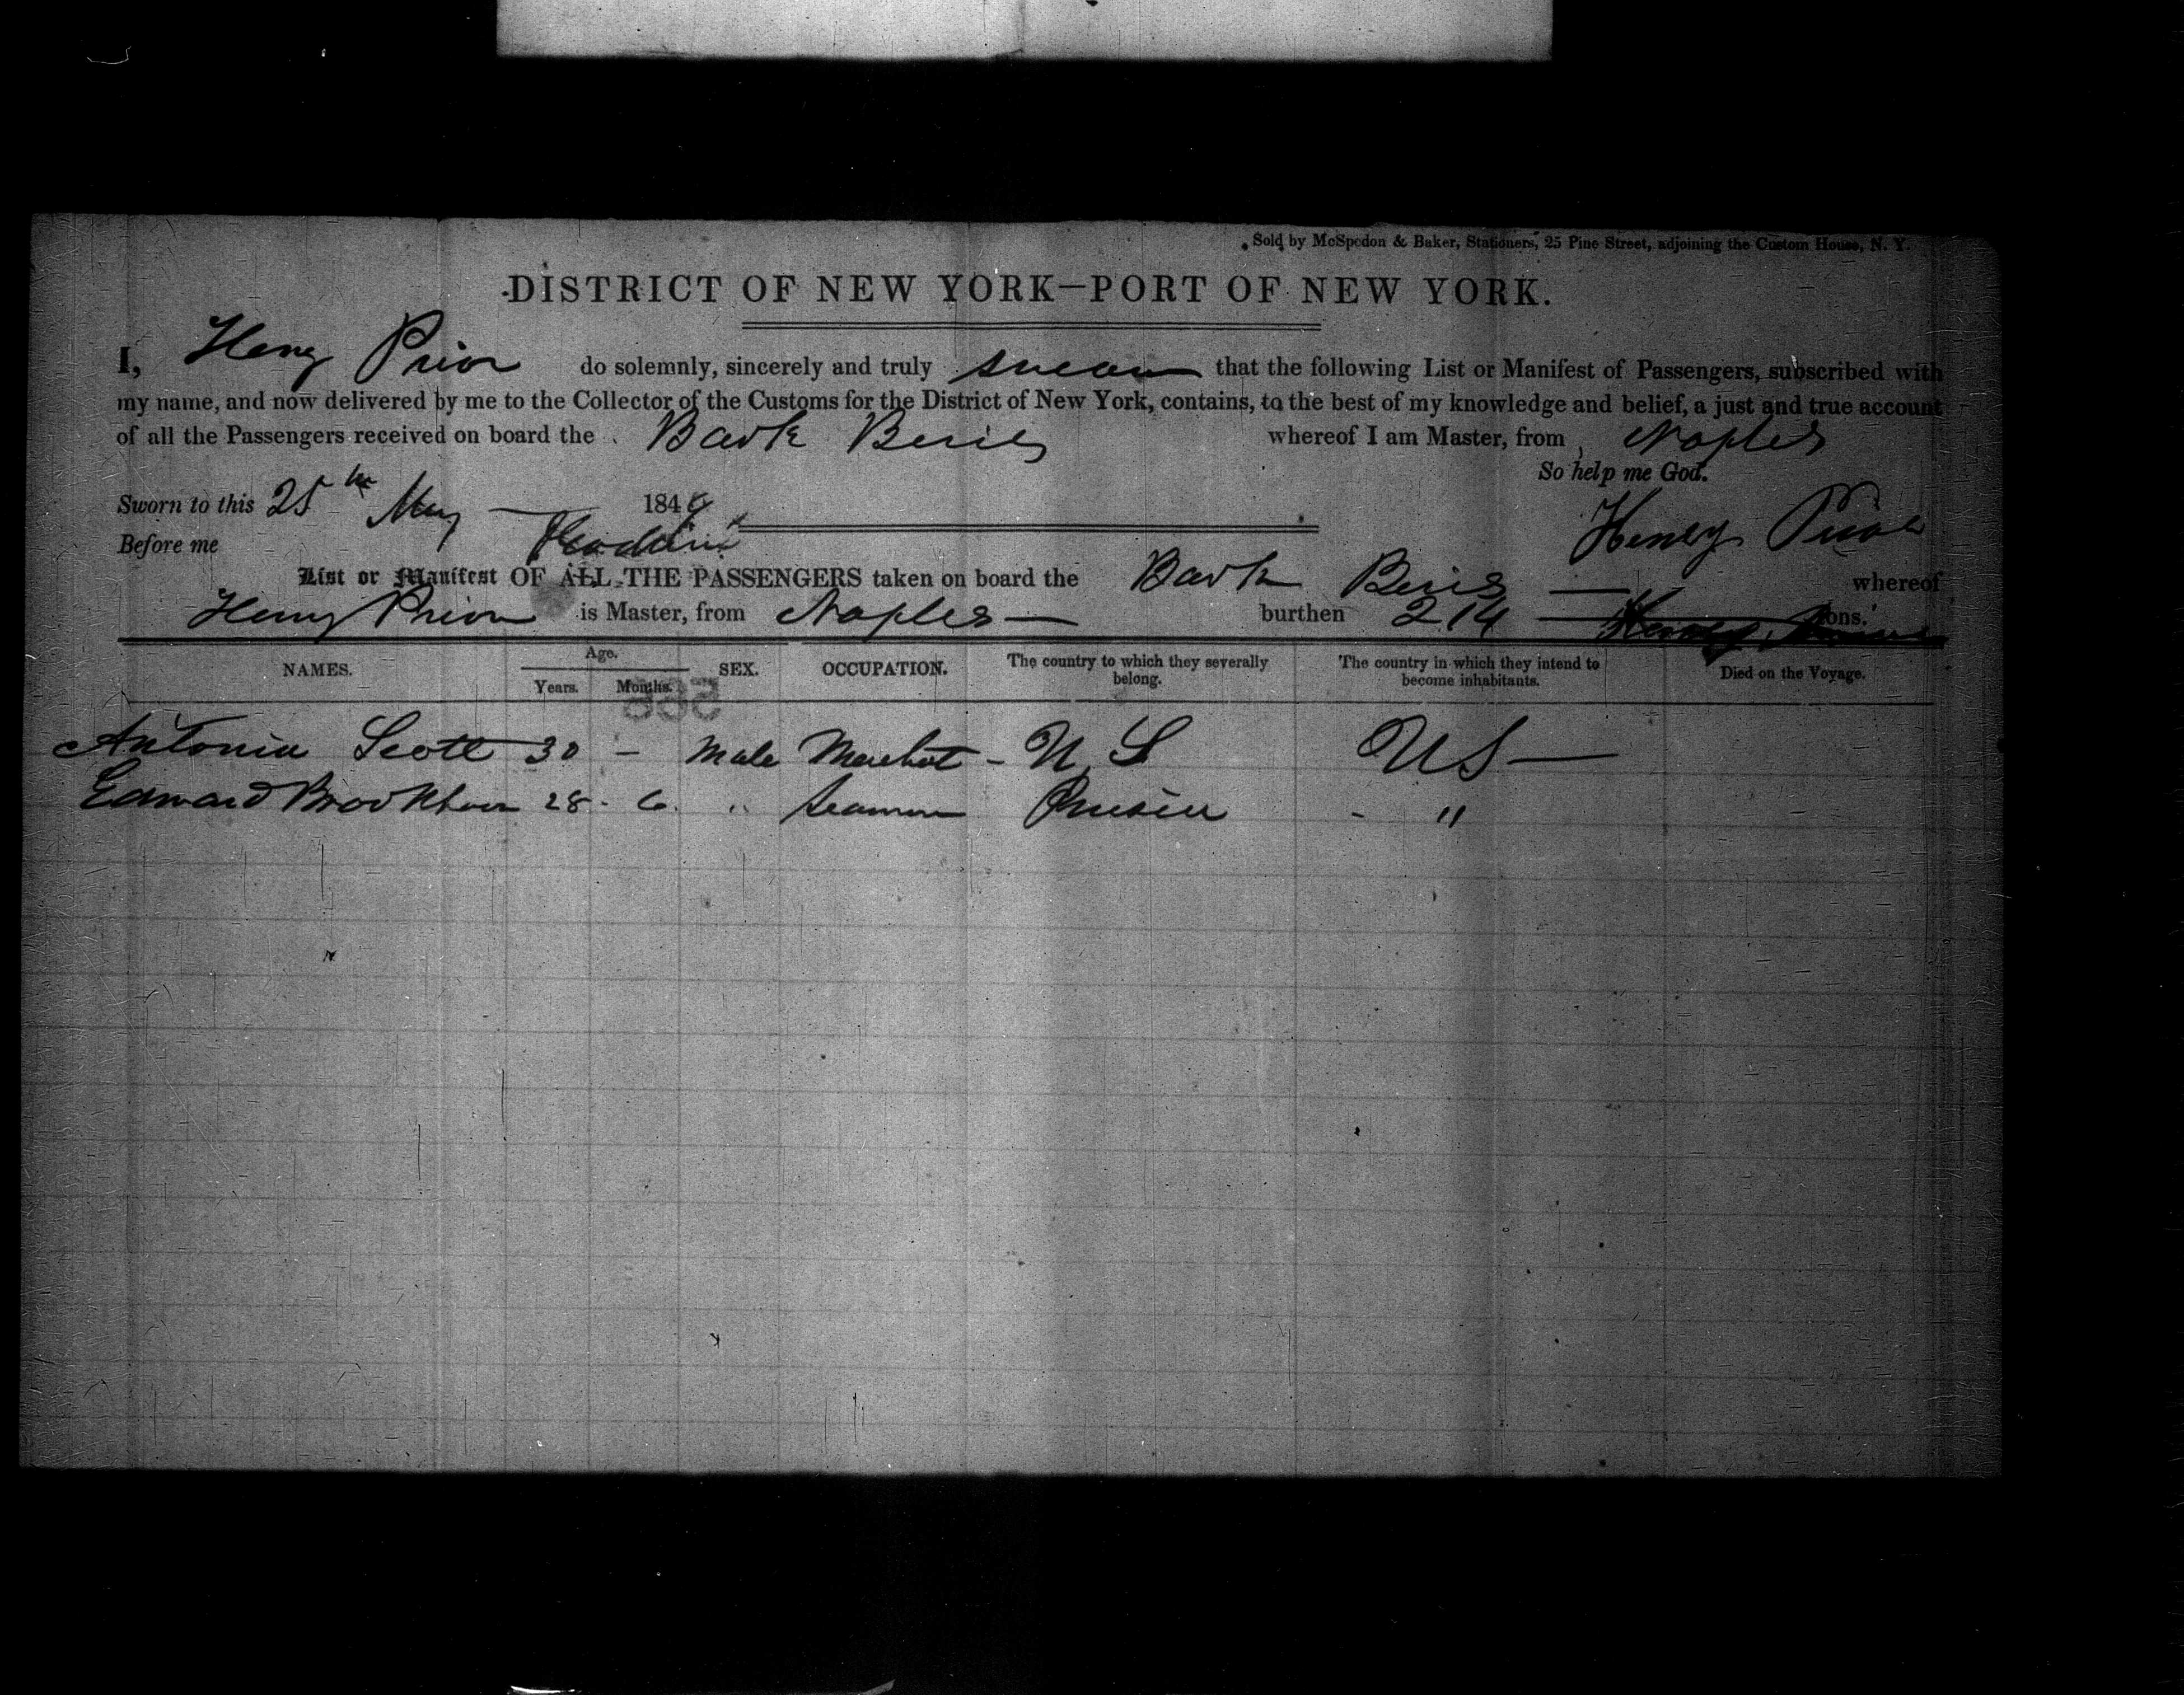 Sold by McSpedon & Baker, Stationers, 25 Pine Street, adjoining the Custom House, N. Y.
DISTRICT OF NEW YORK—PORT OF NEW YORK.
I, Henry Prior do solemnly, sincerely and truly swear that the following List or Manifest of Passengers, subscribed with
my name, and now delivered by me to the Collector of the Customs for the District of New York, contains, to the best of my knowledge and belief, a just and true account
of all the Passengers received on board the Bark whereof I am Master, from Naples
So help me God.
Sworn to this 25th May 184
Henry Prior
Before me
List or Manifest OF ALL THE PASSENGERS taken on board the Bark whereof
Henry Prior is Master, from Naples — burthen 214 — tons.
NAMES. Age. SEX. OCCUPATION. The country to which they severally belong. The country in which they intend to become inhabitants. Died on the Voyage.
Years. Months.
Antonia Scott 30 – Male – U S U S —
Edward 28 - 6 " Seaman - "